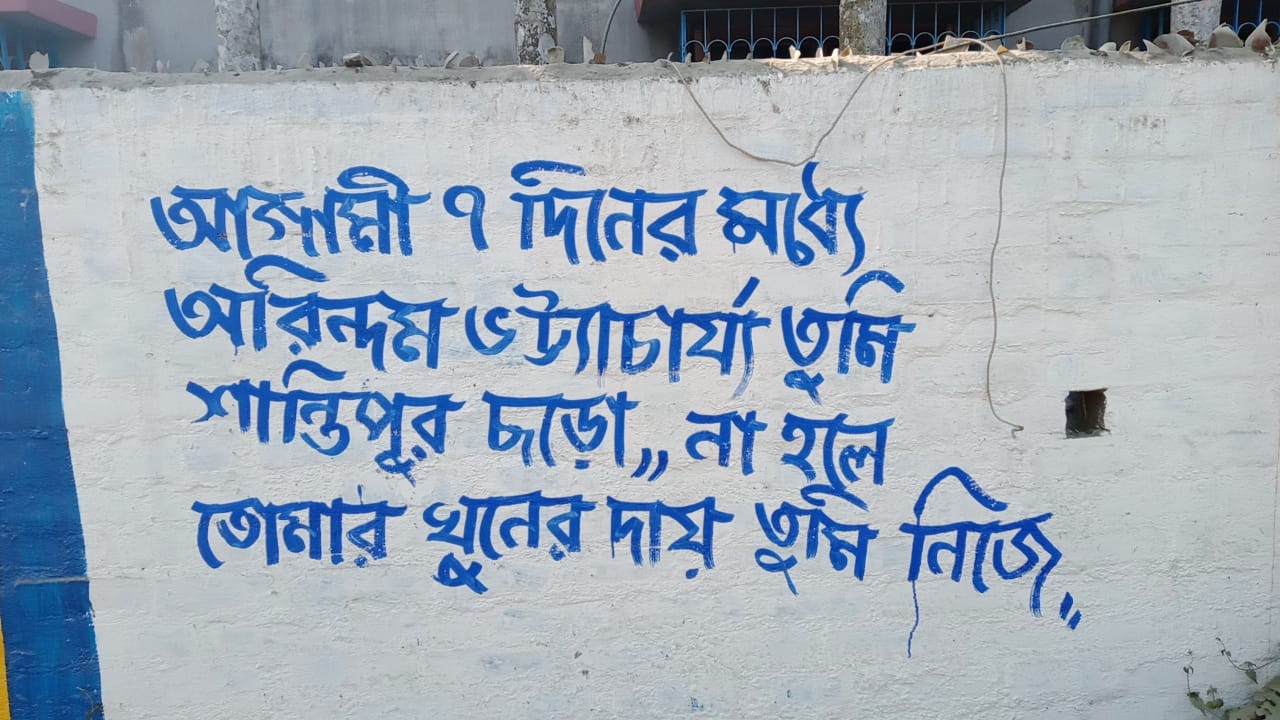 আগামী ৭ দিনের মধ্যে
অরিন্দম ভট্ট্যাচার্য্য তুমি
শান্তিপুর ছাড়ো,, না হলে
তোমার খুনের দায় তুমি নিজে,,